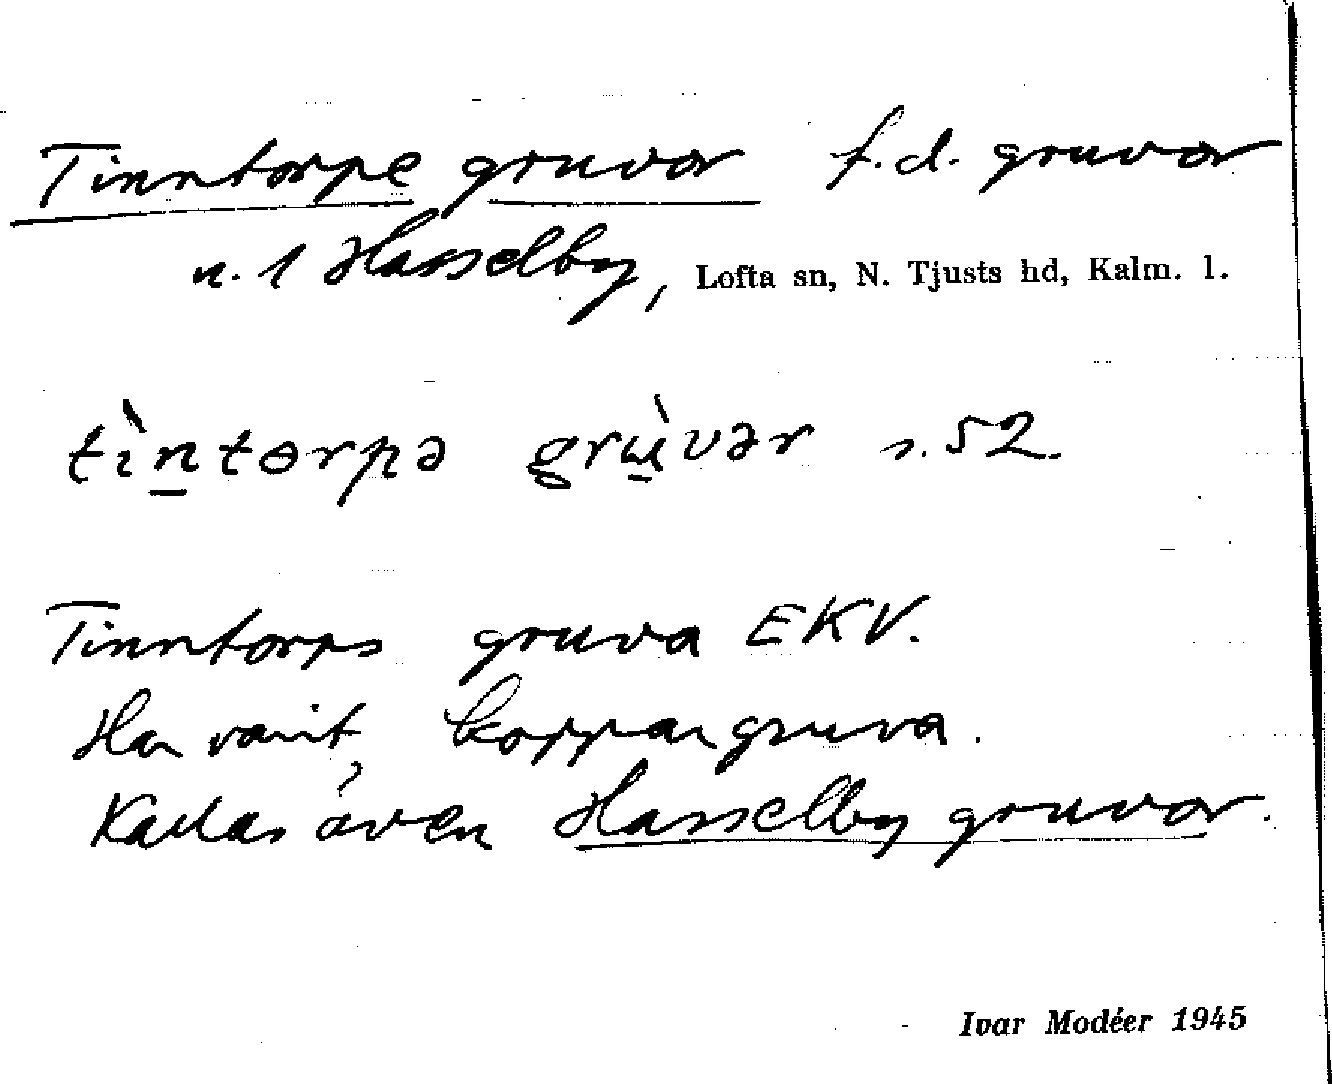 Tinntorpe gruvor f.d. gruvor
u. 1 Hasselby, Lofta sn, N. Tjusts hd, Kalm. l.
tìntɵrpə grùvər s. 52.
Tinntorps gruva EKV.
Har varit koppargruva.
Kallas även Hasselby gruvor.
Ivar Modéer 1945